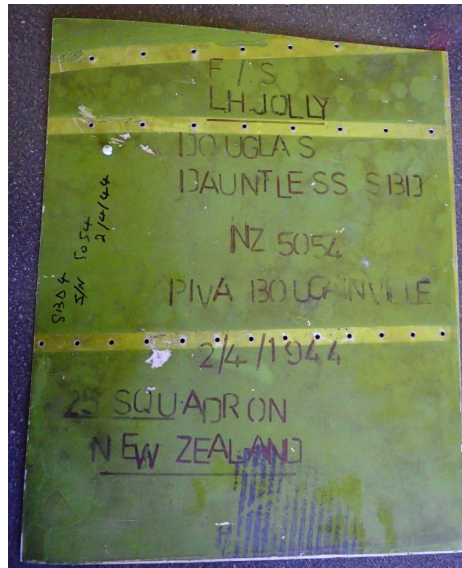 F/S
L.H.JOLLY
DOUGLAS
DAUNTLESS SBD
NZ 5054
PIVA BOUGAINVILLE
2/4/1944
25 SQUADRON
NEW ZEALAND
SBD4
S/N 5054
2/4/44